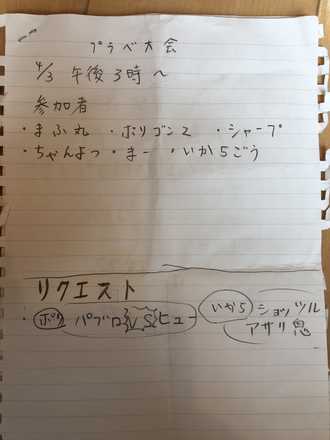 プラベ大会
4/3 午後3時〜
参加者
・まふ丸 ・ポリゴンZ ・シャープ
・ちゃんよっ ・まー ・いか5ごう
リクエスト
・ポリ パブロVSヒュー いか5 ショッツル
アサリ鬼